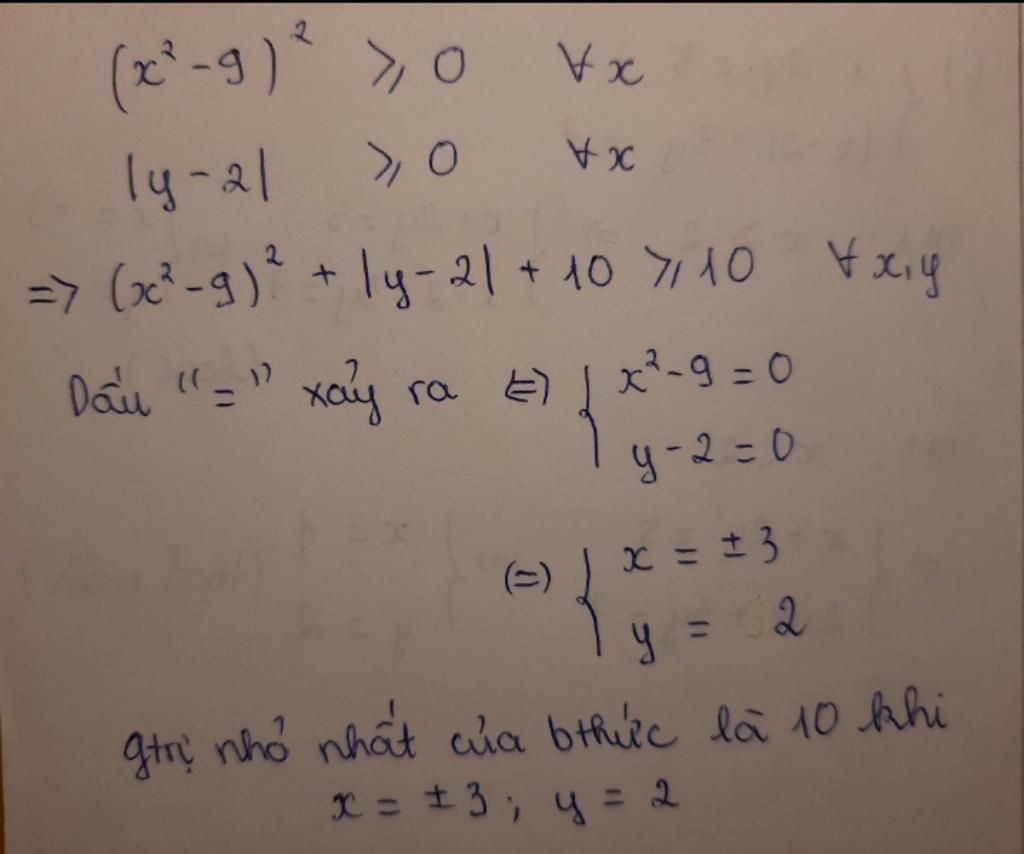 (x² - 9)² ⩾ 0 ∀x
|y - 2| ⩾ 0 ∀x
=> (x² - 9)² + |y - 2| + 10 ⩾ 10 ∀x,y
Dấu "=" xảy ra (=) { x² - 9 = 0
y - 2 = 0
(=) { x = ±3
y = 2
gtrị nhỏ nhất của bthức là 10 khi
x = ±3; y = 2